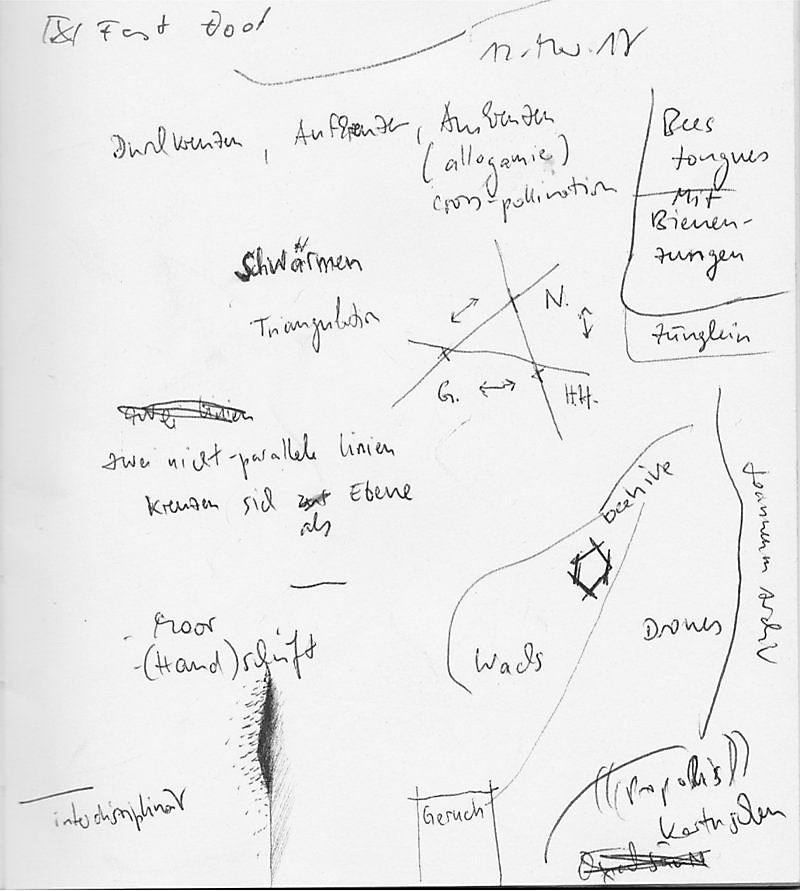 IX/ Fast
Durchkreuzen, Aufkreuzen, Auskreuzen
(allogamie)
cross-pollination
Bees
tongues
Mit
Bienen-
zungen
Zünglein
Schwärmen
Triangulation
N.
G.
H.H.
zwei linien
zwei nicht-parallele linien
kreuzen sich Ebene
als
beehive
Wachs
Drones
Joanneum Archiv
Moor
-(Hand)schrift
interdisziplinär
Geruch
(((Propolis)))